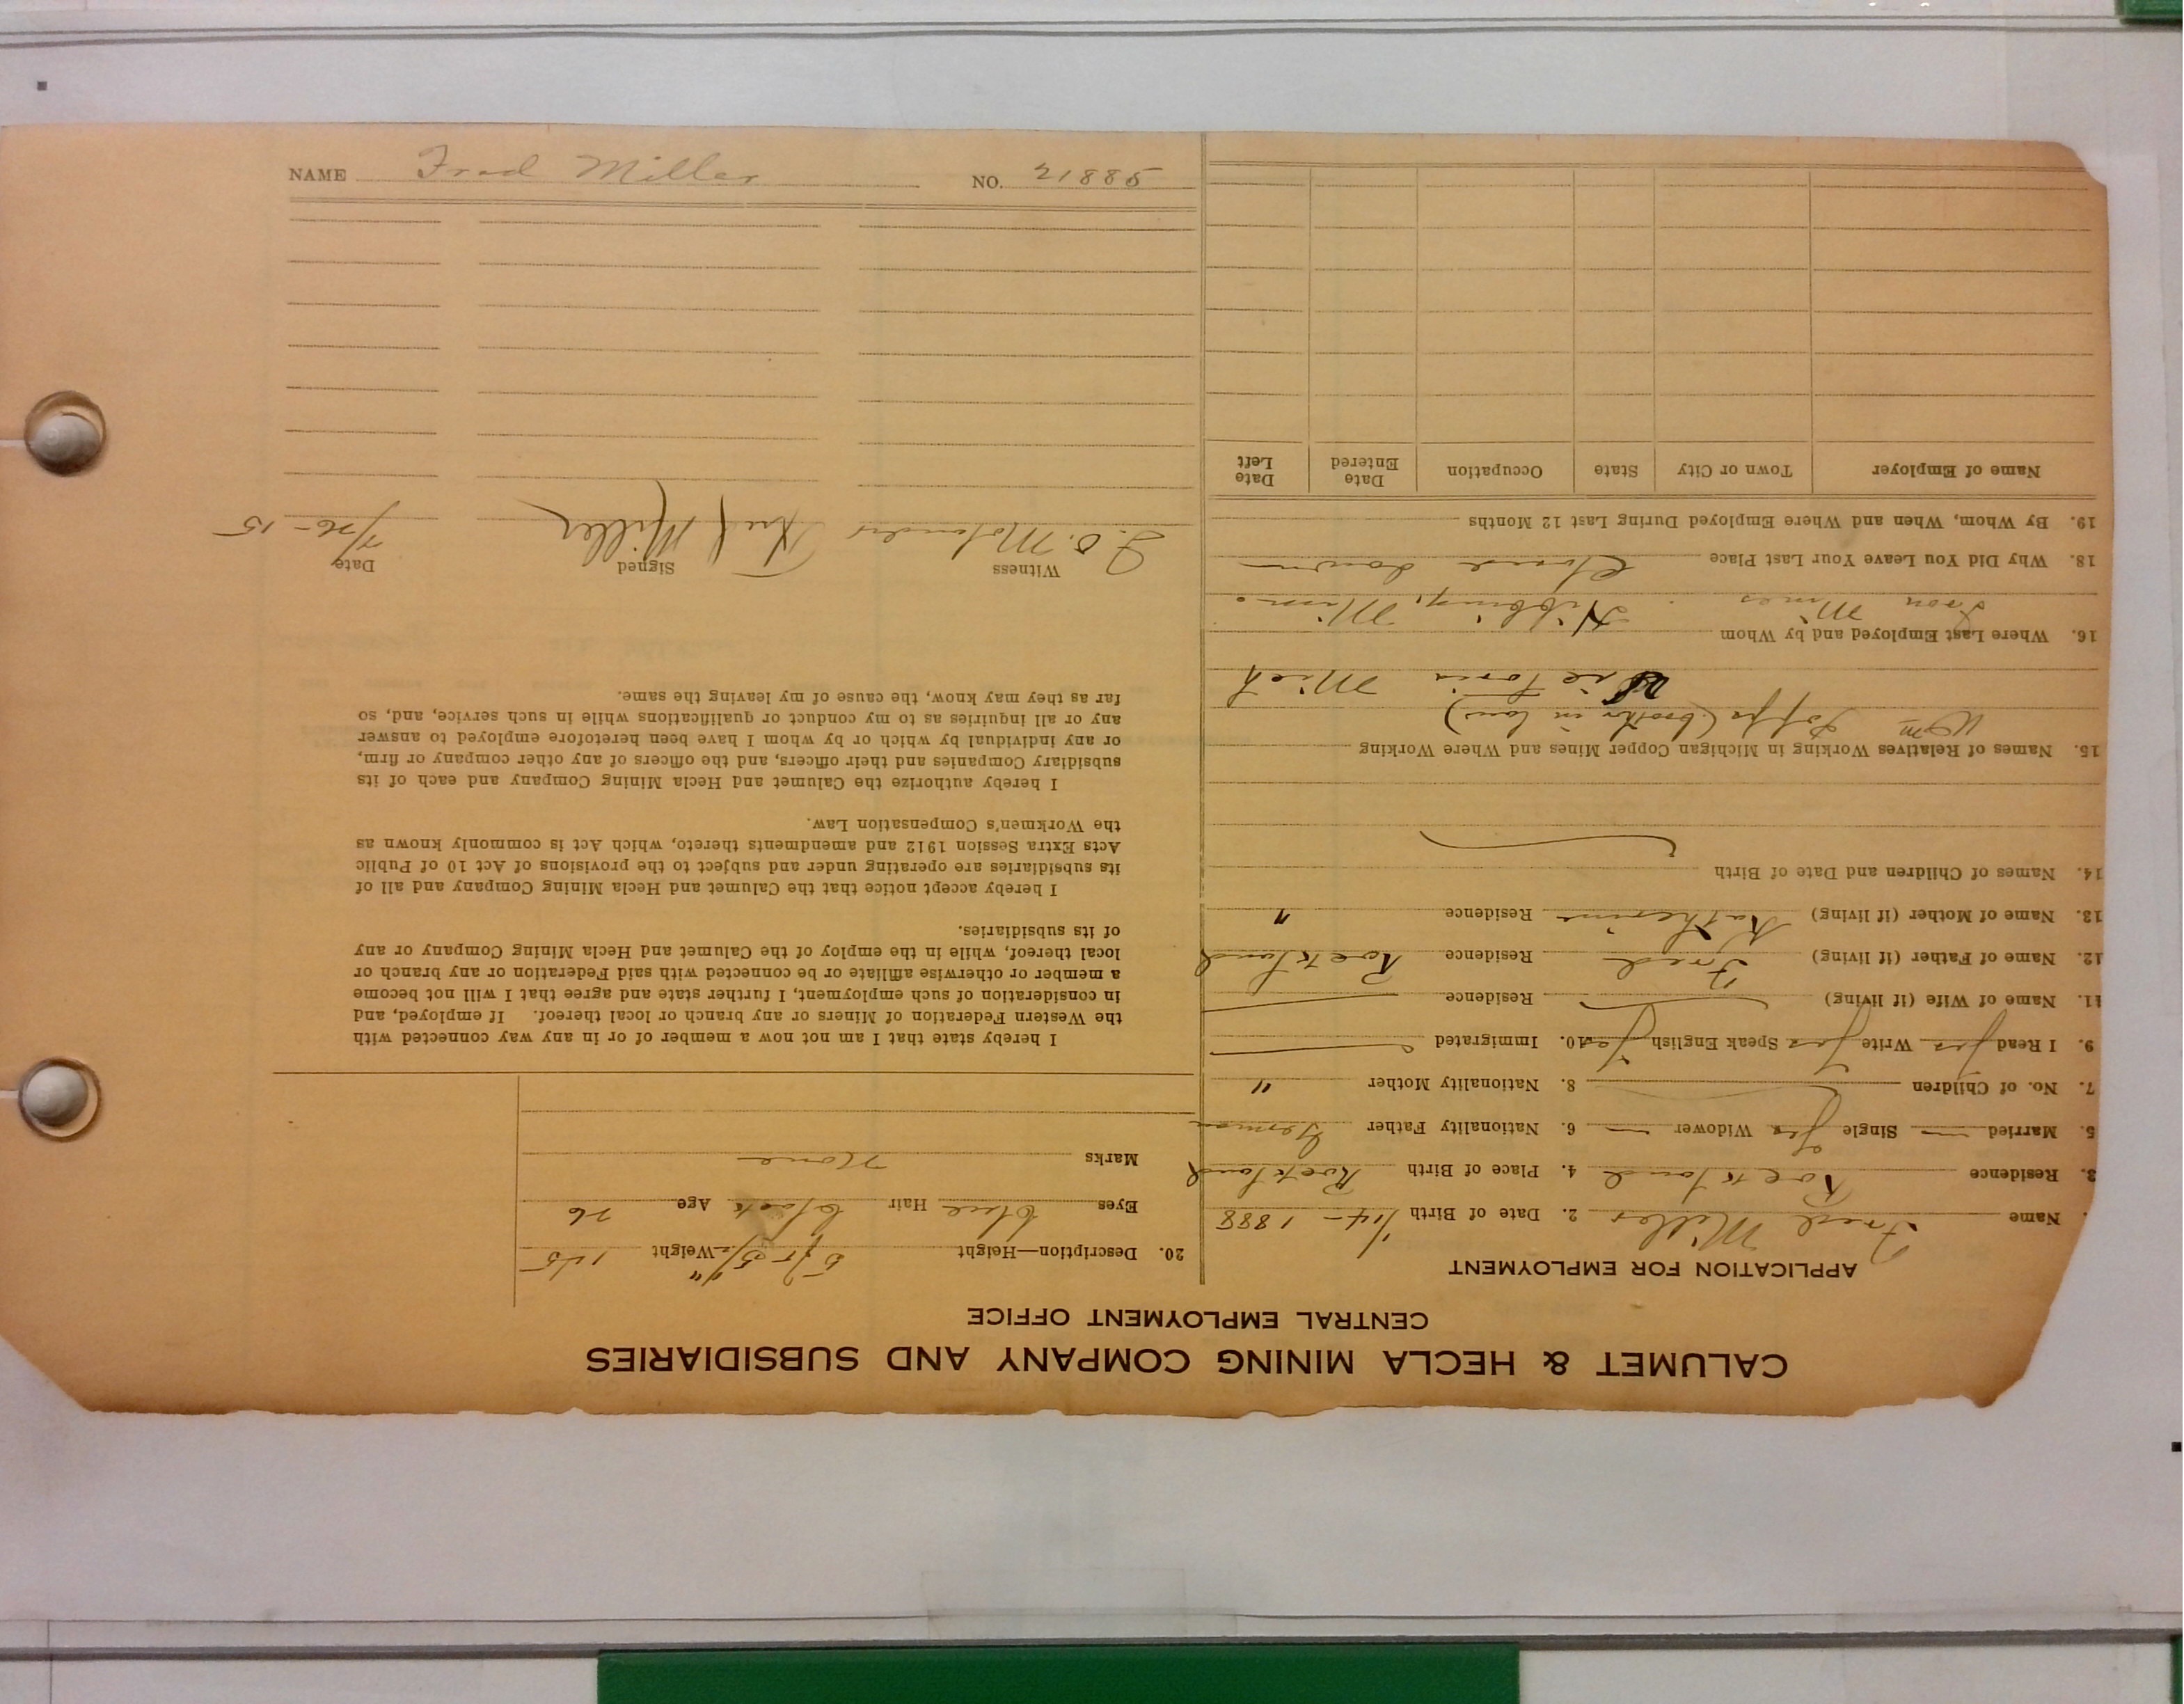 CALUMET & HECLA MINING COMPANY AND SUBSIDIARIES
CENTRAL EMPLOYMENT OFFICE
APPLICATION FOR EMPLOYMENT
Name Fred Miller 2. Date of Birth 1/14 - 1888
3. Residence Rockland 4. Place of Birth Rockland
5. Married — Single Yes Widower — 6. Nationality Father German
7. No. of Children 8. Nationality Mother "
9. I Read yes Write yes Speak English yes 10. Immigrated
11. Name of Wife (if living) Residence
12. Name of Father (if living) Fred Residence Rockland
13. Name of Mother (if living) Katherine Residence "
14. Names of Children and Date of Birth
15. Names of Relatives Working in Michigan Copper Mines and Where Working
Wm (brother in law)
Victoria Mich
16. Where Last Employed and by Whom Hibbing, Minn.
Iron Mines
18. Why Did You Leave Your Last Place Closed down
19. By Whom, When and Where Employed During Last 12 Months
Name of Employer Town or City State Occupation Date Entered Date Left
20. Description—Height 5 ft 5 1/2" Weight 155
Eyes blue Hair black Age 26
Marks none
I hereby state that I am not now a member of or in any way connected with
the Western Federation of Miners or any branch or local thereof. If employed, and
in consideration of such employment, I further state and agree that I will not become
a member or otherwise affiliate or be connected with said Federation or any branch or
local thereof, while in the employ of the Calumet and Hecla Mining Company or any
of its subsidiaries.
I hereby accept notice that the Calumet and Hecla Mining Company and all of
its subsidiaries are operating under and subject to the provisions of Act 10 of Public
Acts Extra Session 1912 and amendments thereto, which Act is commonly known as
the Workmen's Compensation Law.
I hereby authorize the Calumet and Hecla Mining Company and each of its
subsidiary Companies and their officers, and the officers of any other company or firm,
or any individual by which or by whom I have been heretofore employed to answer
any or all inquiries as to my conduct or qualifications while in such service, and, so
far as they may know, the cause of my leaving the same.
Witness Signed Date
Fred Miller 7/26-15
NAME Fred Miller NO. 21885